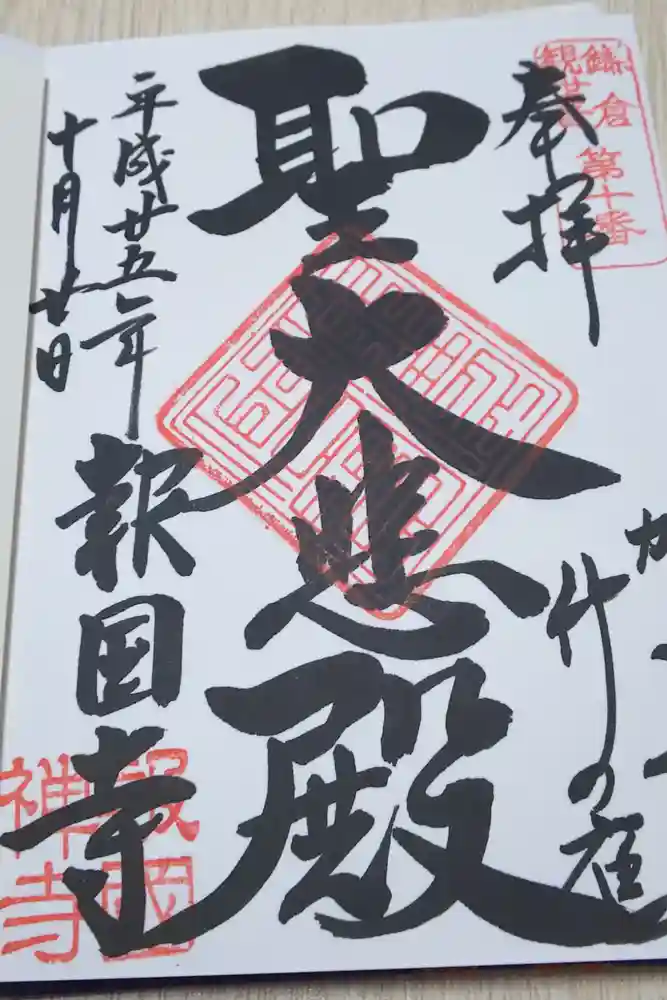 鎌倉
第十番
観世音
奉拝
かまくら
竹の庭
聖大悲殿
平成廿五年
十月廿日
報国寺
報國
禅寺